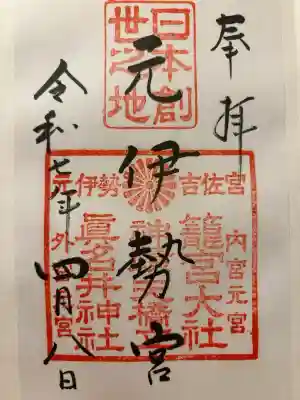 奉拝
日本創
世之地
元伊勢宮
吉佐宮
内宮元宮
籠宮大社
元伊勢
外宮
眞名井神社
令和七年
四月八日